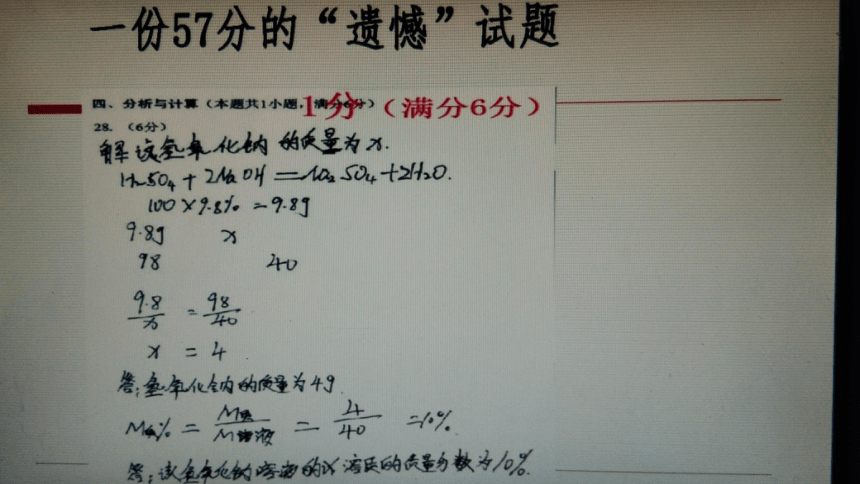 一份57分的“遗憾”试题
四、分析与计算（本题共1小题，满分6分）
1分（满分6分）
28.（6分）
解 设氢氧化钠 的质量为x.
H₂SO₄ + 2NaOH = Na₂SO₄ + 2H₂O.
100×9.8% = 9.8g
9.8g x
98 40
9.8/x = 98/40
x = 4
答：氢氧化钠的质量为4g.
M质% = M质/M溶液 = 4/40 = 10%.
答：该氢氧化钠溶液的 溶质的质量分数为10%.